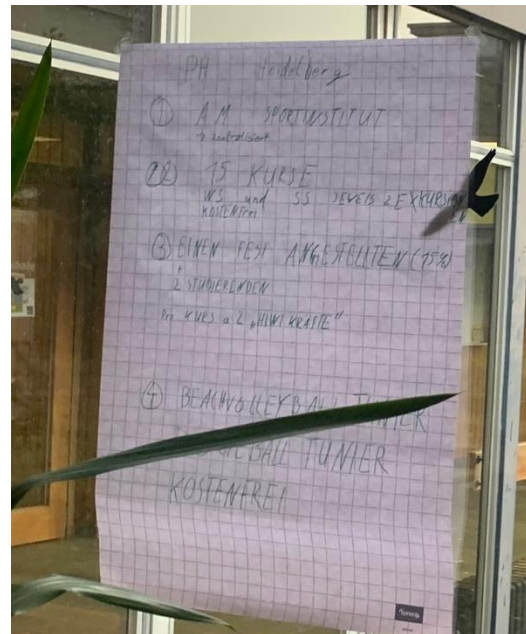 PH Heidelberg
① AM SPORTINSTITUT
→ zentralisiert
② 15 KURSE
WS und SS JEWEILS 2 EXKURSIONEN
KOSTENFREI
③ EINEN FEST ANGESTELLTEN (75%)
+
2 STUDIERENDEN
Pro KURS a 2 „HIWI KRÄFTE“
④ BEACHVOLLEYBALL TUNIER
BALL TUNIER
KOSTENFREI